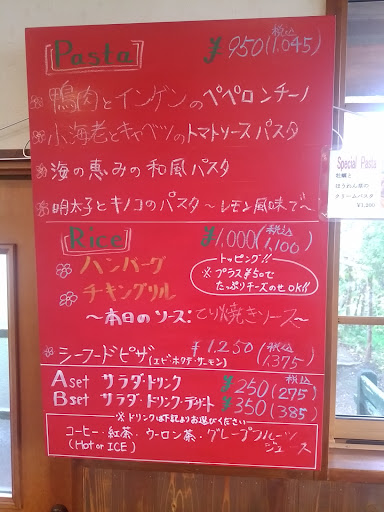 Pasta ¥950(税込1,045)
鴨肉とインゲンのペペロンチーノ
小海老とキャベツのトマトソースパスタ
海の恵みの和風パスタ
明太子とキノコのパスタ〜レモン風味で〜
Rice ¥1,000(税込1,100)
ハンバーグ
チキングリル
トッピング!!
※プラス¥50で
たっぷりチーズのせOK!!
〜本日のソース:てり焼きソース〜
シーフードピザ(エビ・ホタテ・サーモン) ¥1,250(税込1,375)
Aset サラダ・ドリンク ¥250(税込275)
Bset サラダ・ドリンク・デザート ¥350(税込385)
※ドリンクは下記よりお選びください
コーヒー・紅茶・ウーロン茶・グレープフルーツ
(Hot or ICE) ジュース
Special Pasta
牡蠣と
ほうれん草の
クリームパスタ
¥1,200